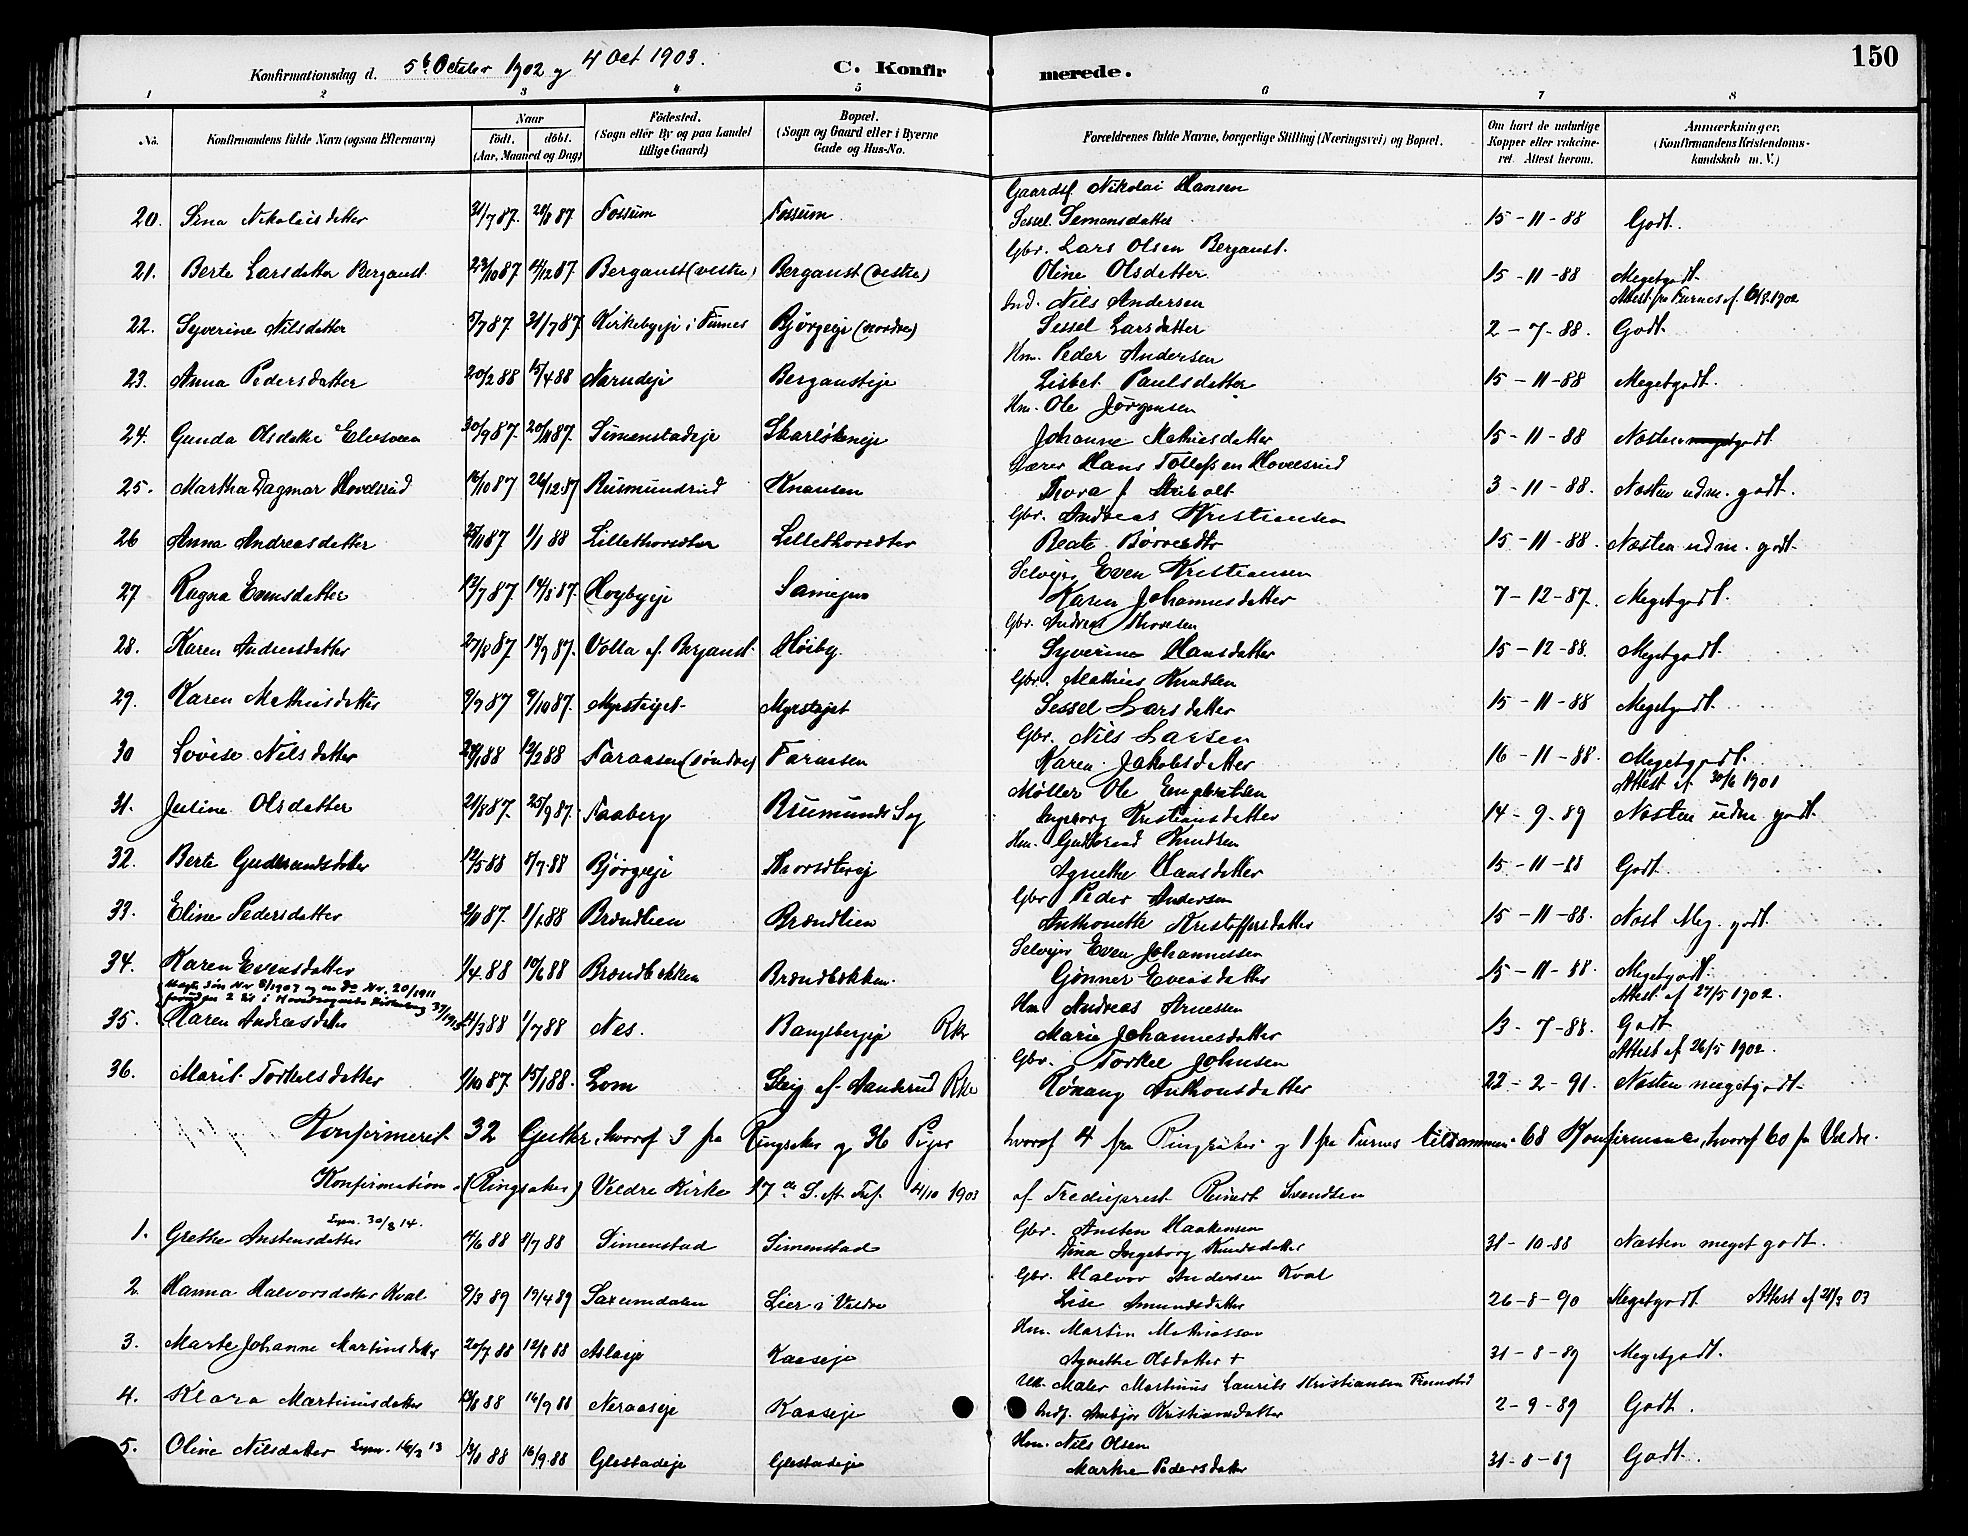 150
Konfirmationsdag d. 5te October 1902 og 4 Oct 1903.
C. Konfirmerede.
1 2 3 4 5 6 7 8
No.
Konfirmandens fulde Navn (ogsaa Efternavn)
Naar
født. døbt.
(Aar, Maaned og Dag)
Fødested.
(Sogn eller By og paa Landet
tillige Gaard)
Bopæl.
(Sogn og Gaard eller i Byerne
Gade og Hus-No.
Forældrenes fulde Navne, borgerlige Stilling (Næringsvei) og Bopæl.
Om havt de naturlige
Kopper eller vakcine-
ret. Attest herom.
Anmærkninger.
(Konfirmandens Kristendoms-
kundskab m. V.)
Gaardsf. Nikolai Hansen
20. Nikolaisdatter 31/7 87. 28/8 87 Fossum Fossum Sessel Semensdatter 15-11-88 Godt.
Gbr. Lars Olsen Bergaust.
21. Berte Larsdatter Bergaust. 23/10 87 14/12 87 Bergaust (vestre) Bergaust (vestre) Oline Olsdatter 15-11-88 Megetgodt.
Ind. Nils Andersen Attest fra Furnes af 1902
22. Syverine Nilsdatter 5/7 87 31/7 87 Kirkebyeje i Furnes Bjørgeje (nordre) Sessel Larsdatter 2-7-88. Godt.
Hm. Peder Andersen
23. Anna Pedersdatter 20/2 88 15/4 88 Narudeje Bergausteje Lisbet Paulsdatter 15-11-88 Megetgodt.
Hm. Ole Jørgensen
24. Gunda Olsdatter Elvesveen 30/9 87. 20/11 87. Simenstadeje Skarløkeneje Johanne Mathiesdatter 15-11-88 Næsten meget godt
Lærer Hans Tollefsen Hovelsrud
25. Martha Dagmar Hovelsrud 16/10 87 26/12 87 Rusmundrud Knausen Thora f. 3-11-88. Næsten udm. godt.
Gbr. Andreas Kristiansen
26 Anna Andreasdatter 25/11 87 1/1 88 Lillethorsdter Lillethorsdter Beate 15-11-88. Næsten udm. godt.
Selvejer Even Kristiansen
27 Ragna Evensdatter 12/7 87 14/8 87. Hoybyeje Karen Johannesdatter 7-12-87. Megetgodt.
Gbr. Andreas Thoresen
28. Karen Andreasdatter 27/8 87 18/9 87. Volla af Bergaust Høiby. Syverine Hansdatter 15-12-88. Megetgodt.
Gbr. Mathias Knudsen
29. Karen Mathiasdatter 9/9 87 9/10 87. Myrstejet Myrstejet Sessel Larsdatter 15-11-88 Megetgodt.
Gbr. Nils Larsen
30 Lovise Nilsdatter 24/1 88 12/2 88 Faraasen (søndre) Faraasen Karen Jakobsdatter 16-11-88. Megetgodt.
Møller Ole Engebretsen Attest af 30/6 1901
31. Juline Olsdatter 21/8 87. 25/9 87. Faaberg Brumunds Sag Ingeborg Kristiansdatter 14-9-89 Næsten udm. godt.
Hm. Gudbrand Knudsen
32. Berte Gudbrandsdatter 12/5 88 8/7 88 Bjørgeeje Agnethe Hansdatter 15-11-88 Godt.
Gbr Peder Andersen
33. Eline Pedersdatter 2/11 87. 1/1 88 Brændlien Brændlien Anthonette Kristoffersdatter 15-11-88. Næst Meg. godt.
Selvejer Even Johannessen
34. Karen Evensdatter 1/4. 88 10/6 88 Brændbækken Brændbækken. Gønner Eversdatter 15-11-88. Megetgodt.
Hm Andreas Arnesen Attest af 27/5 1902.
35. Karen Andreasdatter 14/3 88 1/7 88 Nes. Bangsbergeje Rkr Marie Johannesdatter 13-7-88. Godt
Gbr. Torkel Johnsen Attest af 26/5 1902.
36. Marit Torkelsdatter 1/10 87 15/1 88. Lom af Sanderud Rkr Rønaug Anthonsdatter 22-2-91. Næsten megetgodt.
Konfirmeret 32 Gutter, hvoraf 3 fra Ringsaker og 36 Piger hvoraf 4 fra Ringsaker og 1 fra Furnes tilsammen 68 Konfirmander, hvoraf 60 fra Veldre.
Konfirmation (Ringsaker) Veldre Kirke 17de S. eft. Tref. 4/10 1903 af Tredieprest Reinert Svendsen
Gbr. Austen Haakensen
1. Grethe Austensdatter 30/8 14. 14/6 88 8/7 88 Simenstad Simenstad Dina Ingeborg Knudsdatter 31-10-88 Næsten meget godt.
Gbr. Halvor Andersen Kval
2. Hanna Halvorsdatter Kval 9/3 89 19/4 89 Saxumdalen Lier i Veldre Lise Amundsdatter 26-8-90 Megetgodt Attest af 21/3 03
Hm. Martin Mathiassen
3. Marte Johanne Martinsdatter 20/7 88 12/8 88 Aslaeje Kaaseje Agnethe Olsdatter + 31-8-89 Megetgodt.
Uk. Maler Martinus Laurits Kristiansen Fremstad
4. Klara Martinusdatter 13/8 88 16/9 88 Neraaseje Kaaseje Indf. Ambjør Kristiansdatter 2-9-89 Godt.
Hm. Nils Olsen
5. Oline Nilsdatter 13/8 88 16/9 88 Glestadeje Glestadeje Marthe Pedersdatter 31-8-89 Godt.